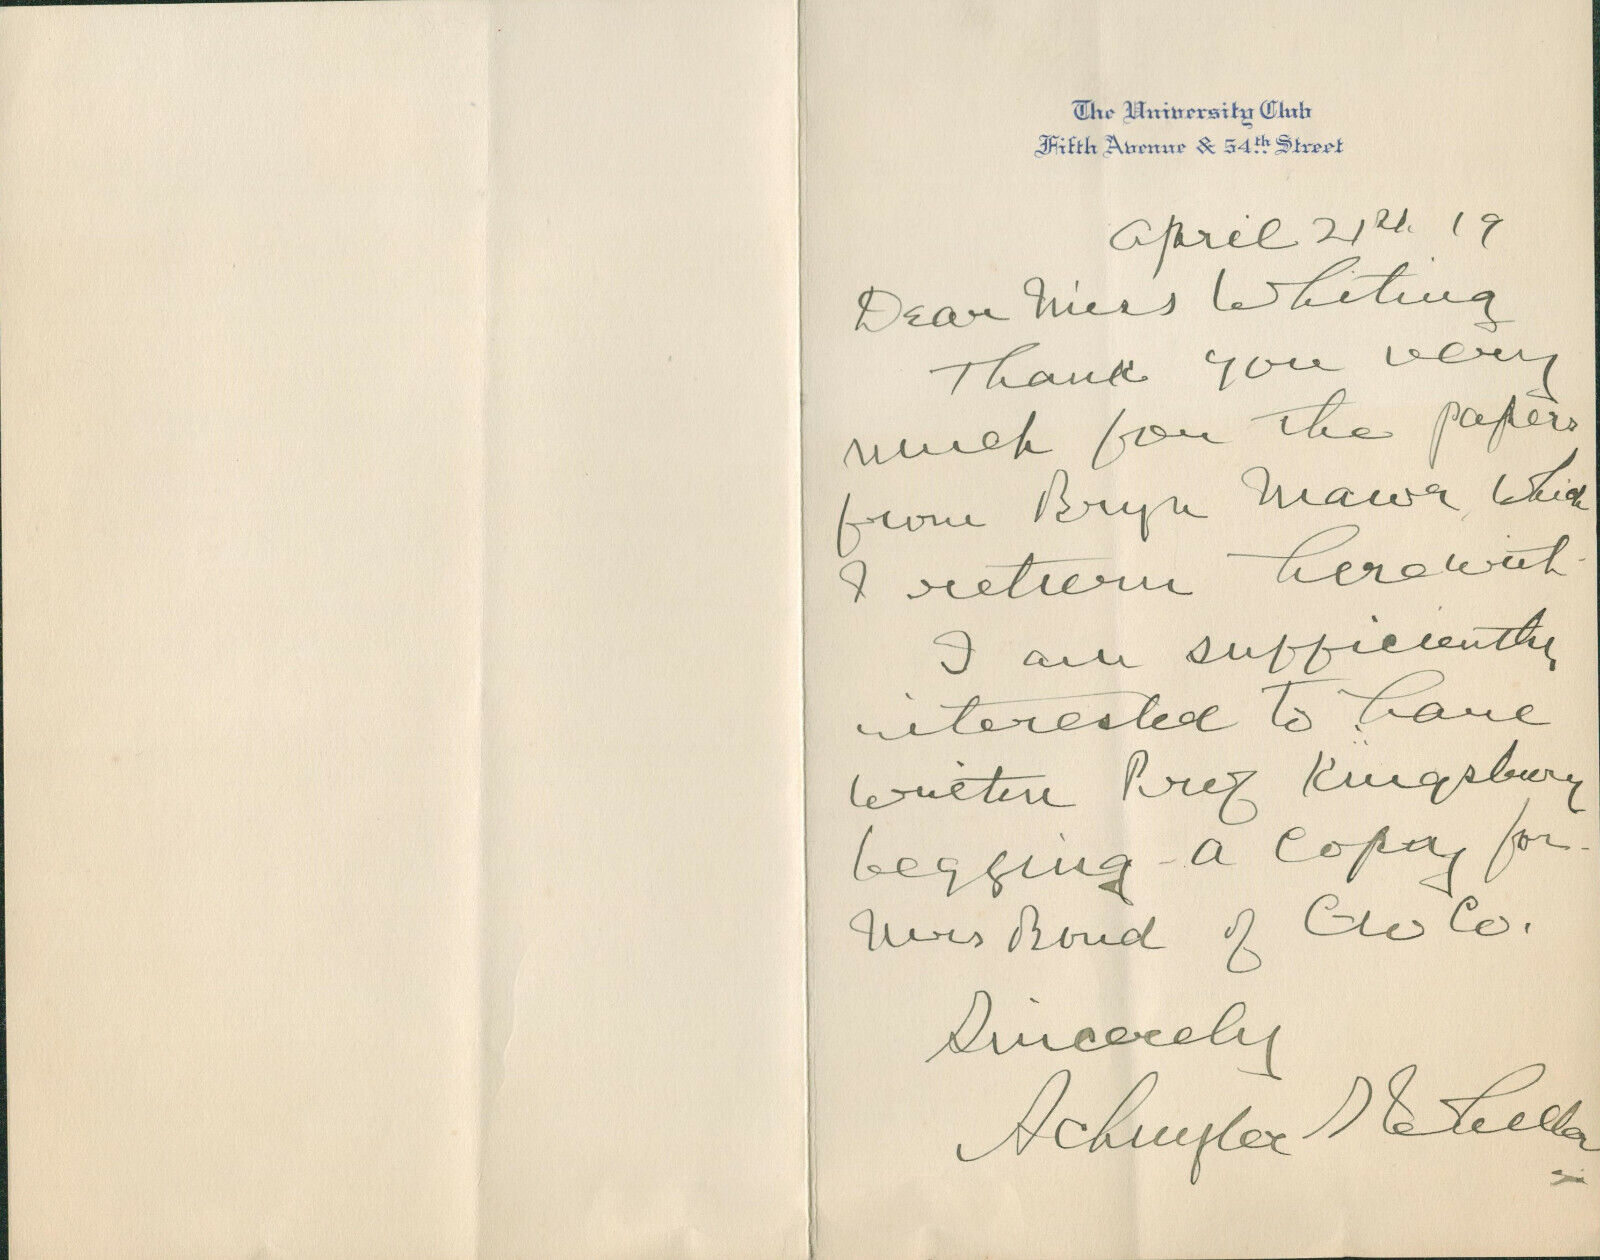 The University Club
Fifth Avenue & 54th Street
April 21st 19
Dear Miss Whiting
Thank you very
much for the papers
from Bryn Mawr, which
I return herewith
I am sufficiently
interested to have
written Prof Kingsbury
begging a copy for
Mrs Bond of Co.
Sincerely
Schuyler